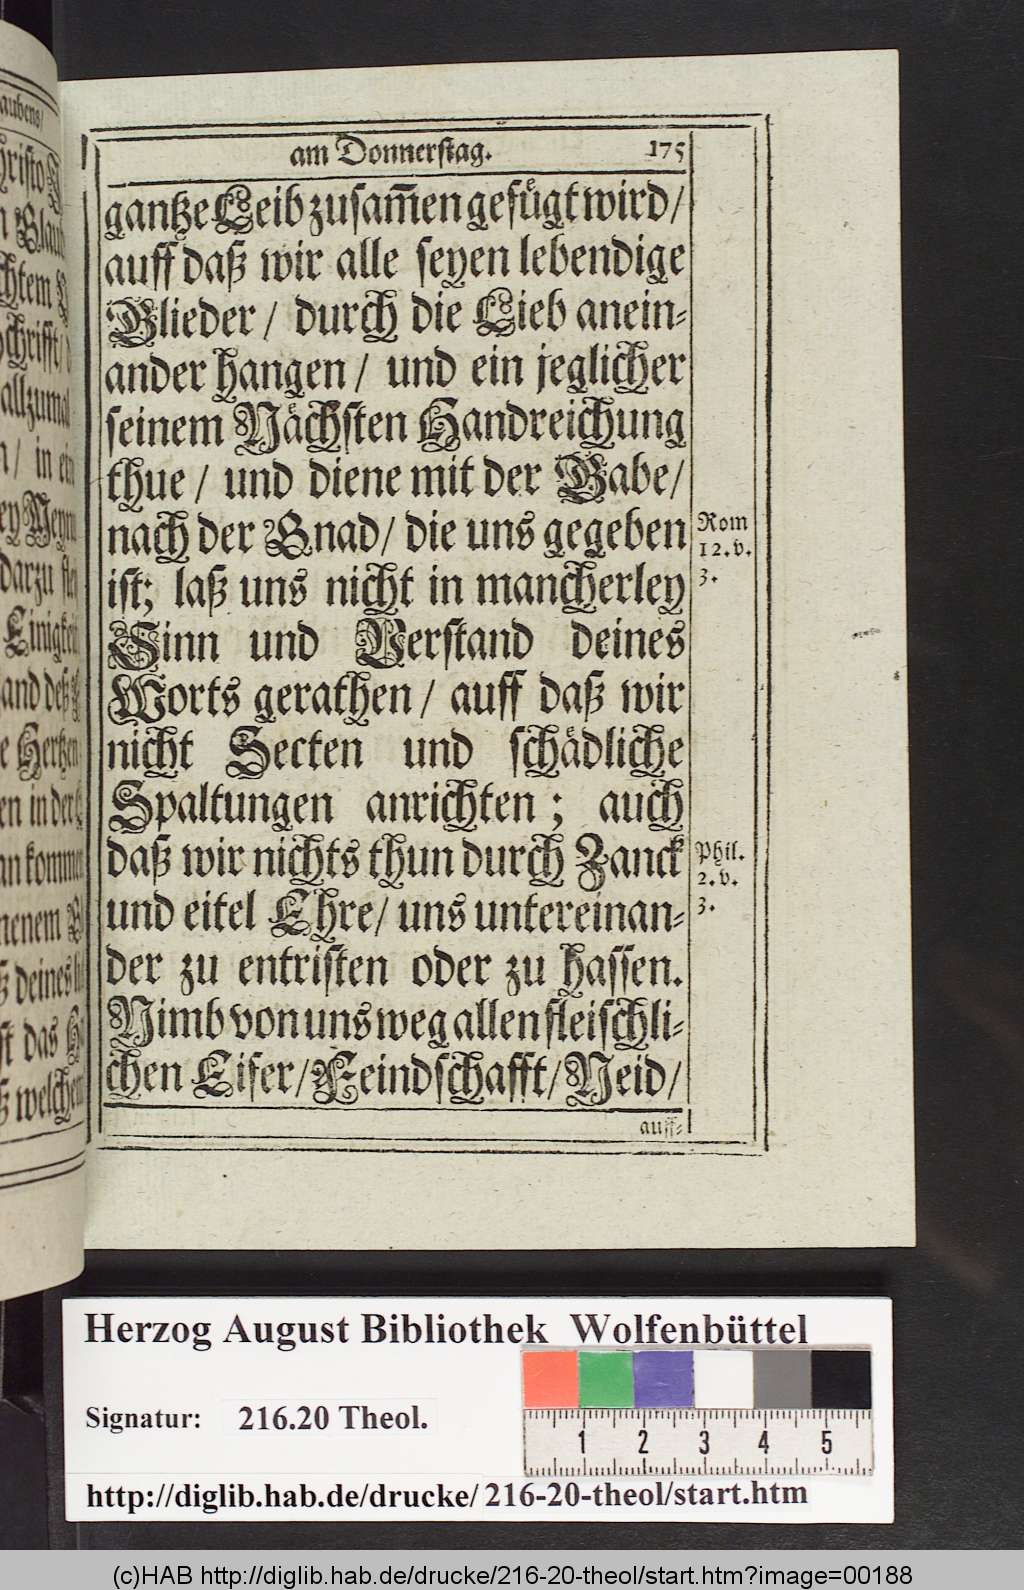 am Donnerstag. 175
gantze Leib zusam̃en gefügt wird/
auff daß wir alle seyen lebendige
Glieder / durch die Lieb anein-
ander hangen / und ein jeglicher
seinem Nächsten Handreichung
thue / und diene mit der Gabe/
nach der Gnad/ die uns gegeben
ist; laß uns nicht in mancherley
Sinn und Verstand deines
Worts gerathen / auff daß wir
nicht Secten und schädliche
Spaltungen anrichten ; auch
daß wir nichts thun durch Zanck
und eitel Ehre/ uns untereinan-
der zu entristen oder zu hassen.
Nimb von uns weg allen fleischli-
chen Eifer/ Feindschafft/ Neid/
auff-
Rom
12. v.
3.
Phil.
2. v.
3.
Herzog August Bibliothek Wolfenbüttel
Signatur: 216.20 Theol.
1 2 3 4 5
http://diglib.hab.de/drucke/216-20-theol/start.htm
(c)HAB http://diglib.hab.de/drucke/216-20-theol/start.htm?image=00188